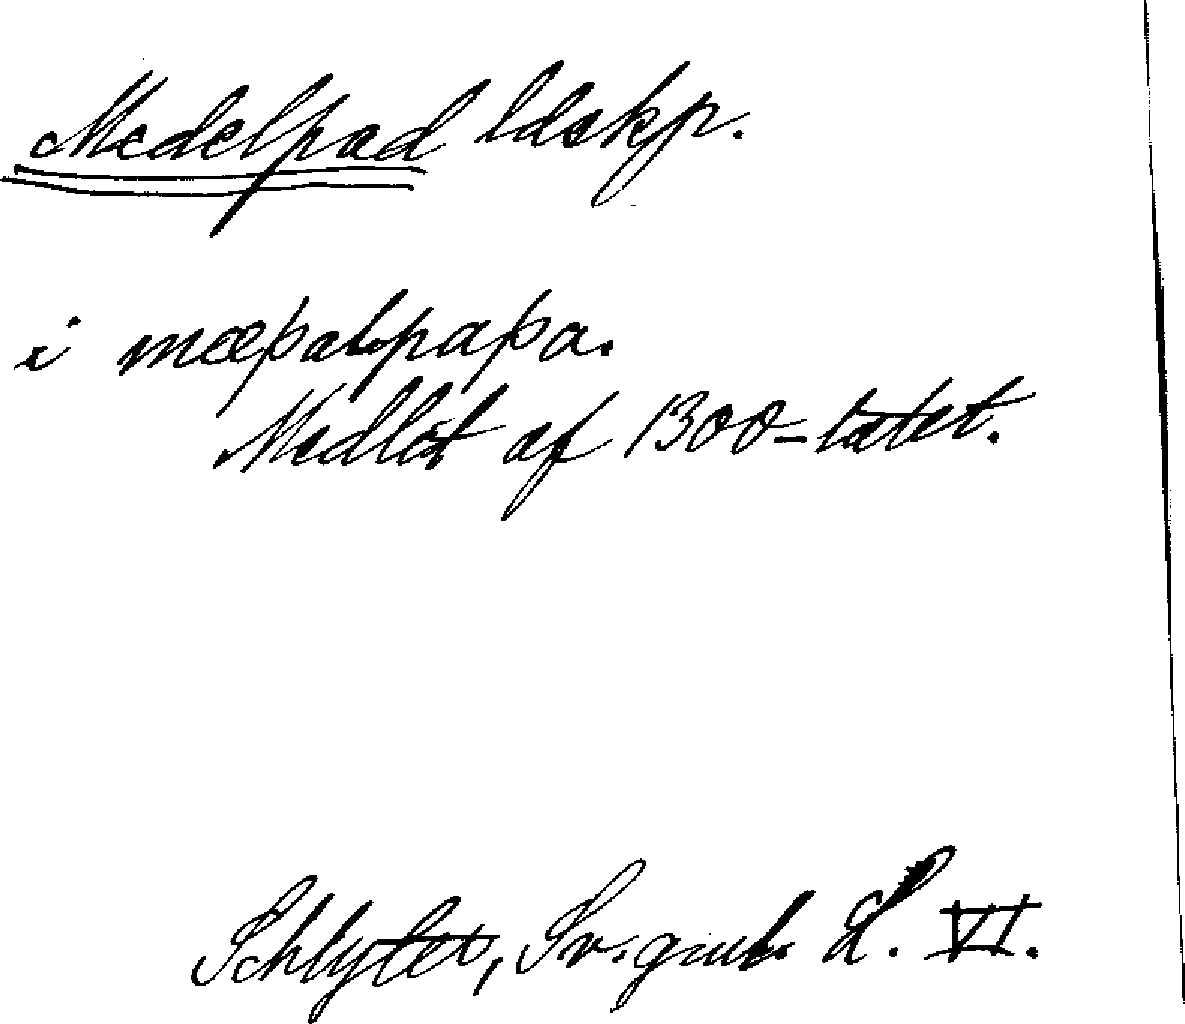 Medelpad ldskp.
i mæþalpaþa.
Medlöst af 1300-talet.
Schlyter, Sv. gml. L. VI.